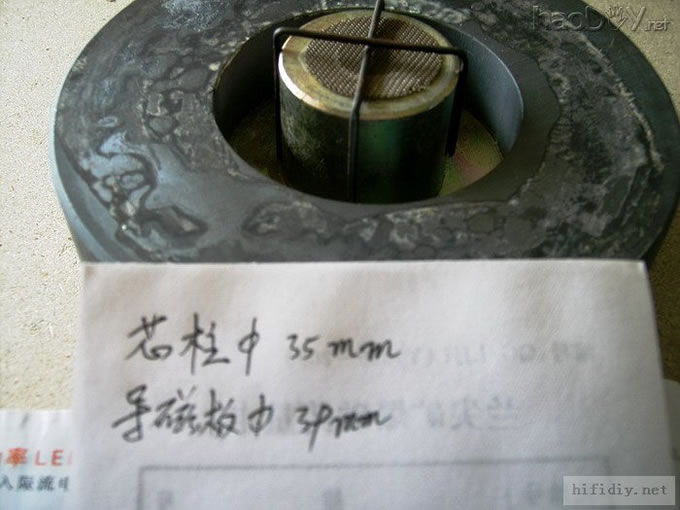 haoDIY.net
芯柱φ 35mm
导磁板φ 39mm
率LE
入限流电
hifidiy.net